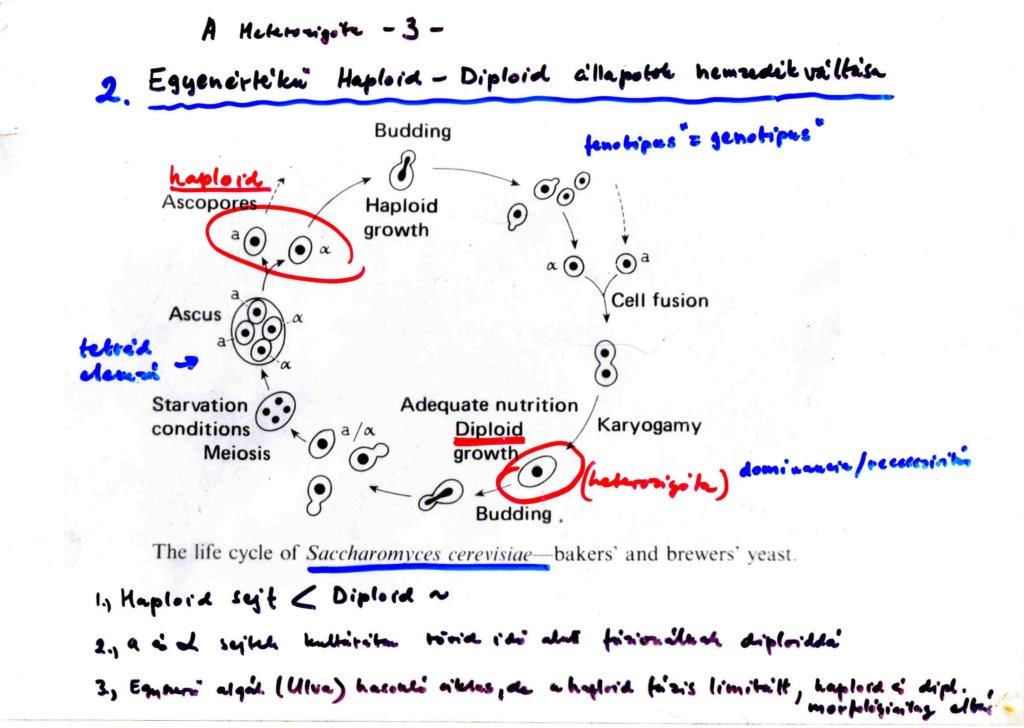 A Heterozigóta - 3 -
2. Egyenértékű Haploid - Diploid állapotok nemzedékváltása
fenotipus" = genotipus"
Budding
haploid
Ascopores
Haploid
growth
a
α
α
a
Cell fusion
Ascus
a
α
a
α
tetrád
elemzés
Starvation
conditions
Meiosis
a/α
Adequate nutrition
Diploid
growth
Karyogamy
(heterozigóta)
dominancia/recesszivitás
Budding
The life cycle of Saccharomyces cerevisiae—bakers' and brewers' yeast.
1., Haploid sejt < Diploid ~
2., a és α sejtek kultúrában rövid idő alatt fúzionálnak diploiddá
3., Egyszerű algák (Ulva) hasonló ciklus, de a haploid fázis limitált, haploid és dipl.
morfológiailag